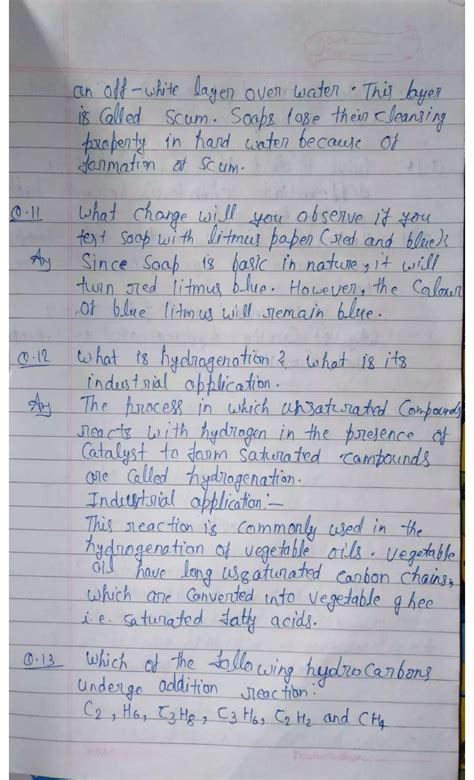 an off-white layer over water. This layer
is called scum. Soaps lose their cleansing
property in hard water because of
formation of scum.
Q.11 What change will you observe if you
test soap with litmus paper (red and blue)?
Ans Since soap is basic in nature, it will
turn red litmus blue. However, the Colour
of blue litmus will remain blue.
Q.12 What is hydrogenation? What is its
industrial application.
Ans The process in which unsaturated Compounds
reacts with hydrogen in the presence of
Catalyst to form saturated compounds
are called hydrogenation.
Industrial application:-
This reaction is commonly used in the
hydrogenation of vegetable oils. vegetable
oil have long usgaturated carbon chains,
which are converted into vegetable ghee
i.e. saturated fatty acids.
Q.13 Which of the following hydrocarbons
undergo addition reaction:
C2, H6, C3H8, C3H6, C2H2 and CH4